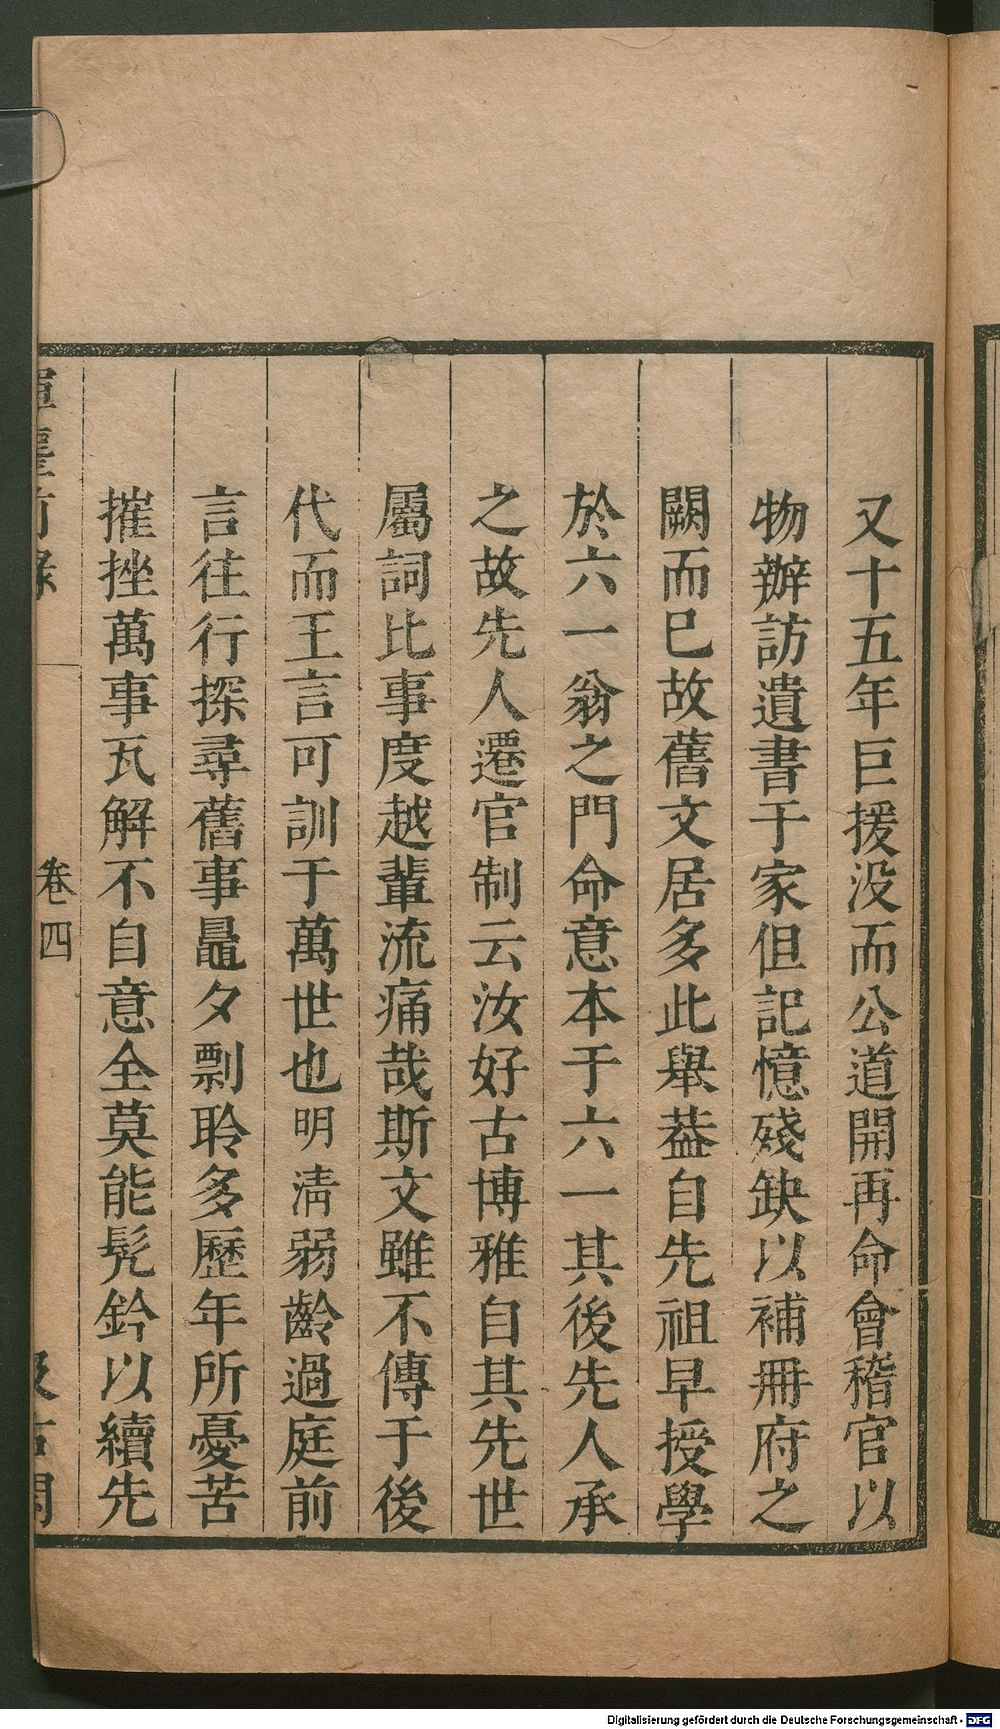 又十五年巨援没而公道開再命會稽官以
物辦訪遺書于家但記憶殘缺以補冊府之
闕而已故舊文居多此舉葢自先祖早授學
於六一翁之門命意本于六一其後先人承
之故先人遷官制云汝好古博雅自其先世
屬詞比事度越輩流痛哉斯文雖不傳于後
代而王言可訓于萬世也明淸弱齡過庭前
言往行探尋舊事鼂夕剽聆多歷年所憂苦
摧挫萬事瓦解不自意全莫能髠鈐以續先
揮麈前錄
卷四
汲古閣
Digitalisierung gefördert durch die Deutsche Forschungsgemeinschaft - DFG